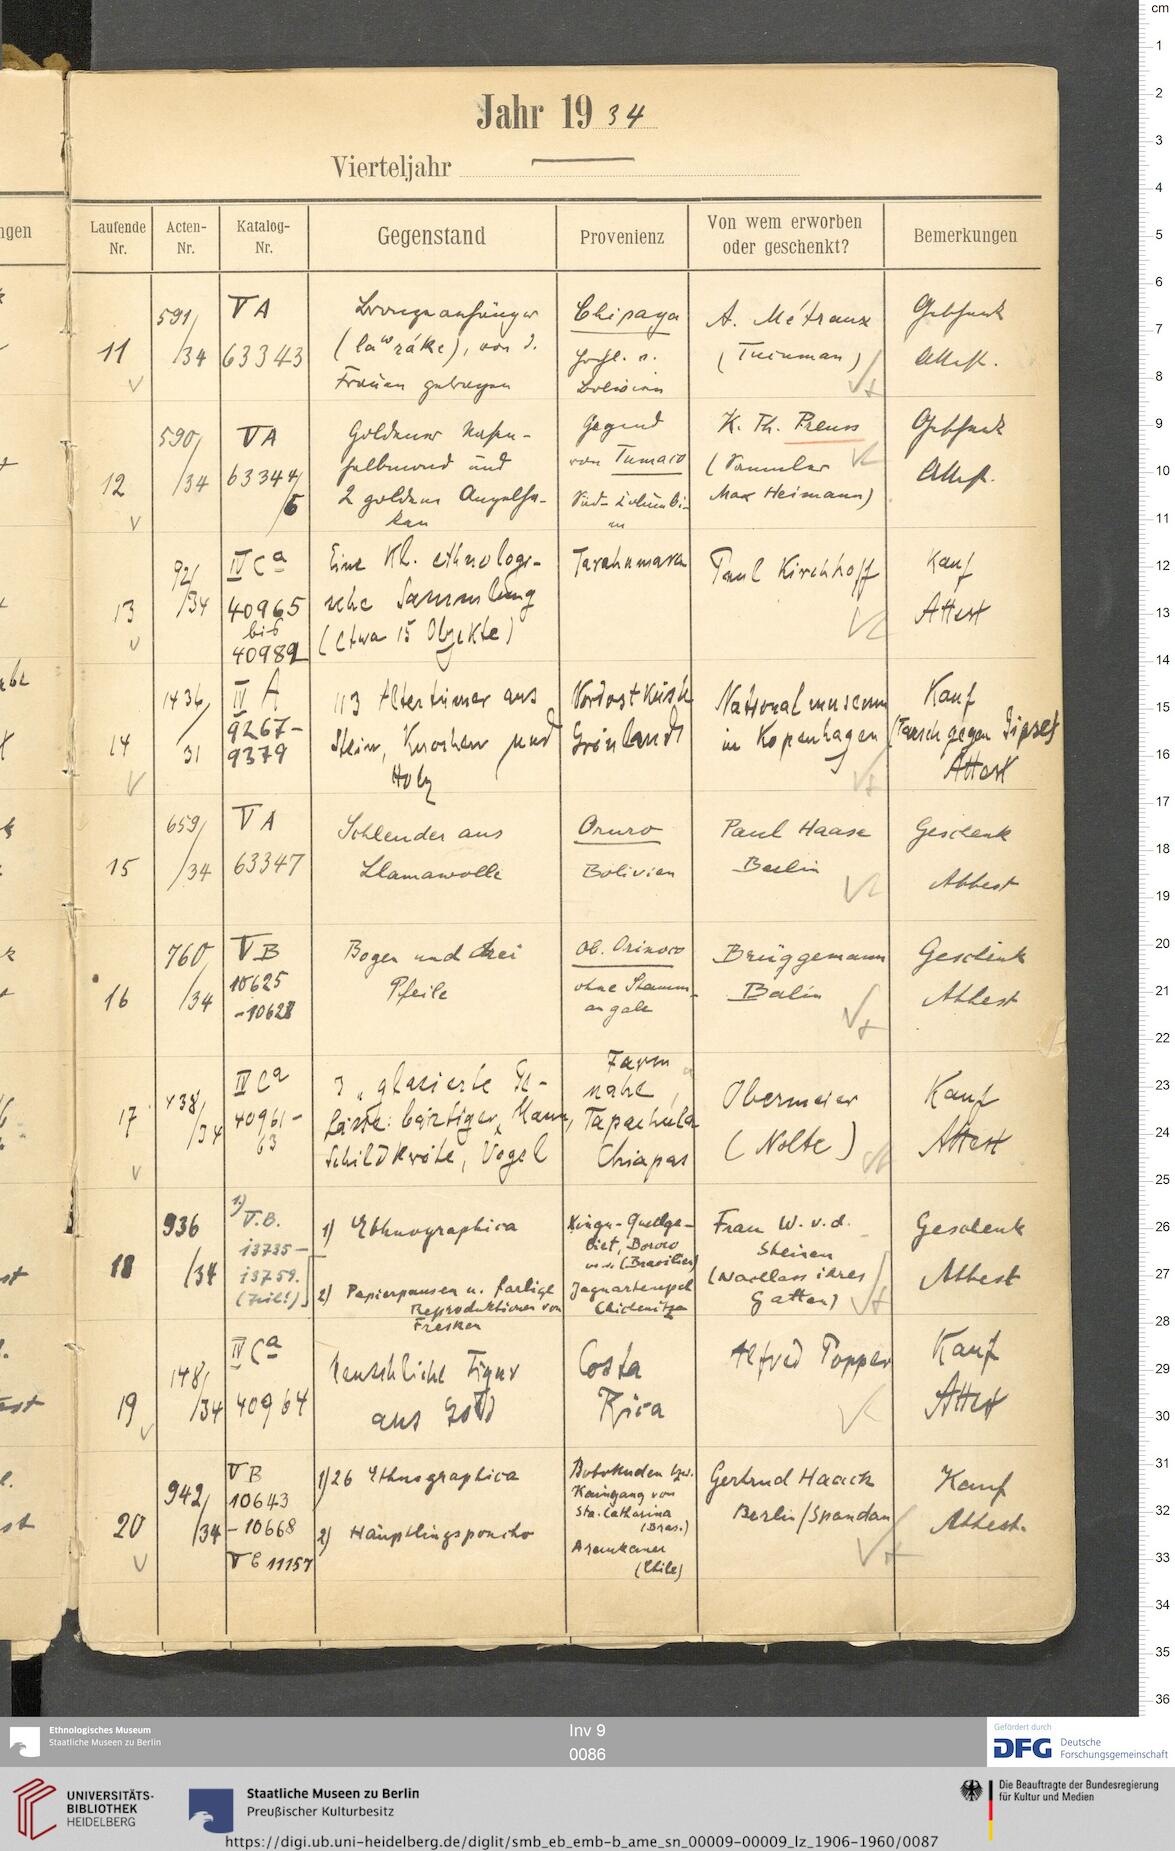 Jahr 19 34
Vierteljahr
Laufende Nr.
Acten-Nr.
Katalog-Nr.
Gegenstand
Provenienz
Von wem erworben oder geschenkt?
Bemerkungen
11
591/
/34
V A
63343
Bronzeanhänger
von d.
Frauen getragen
Chipaya
Bolivien
A. Métraux
(Tucuman)
Attest.
12
590/
/34
V A
63344/
Goldener Nasen-
halbmond und
2 goldene Angelha-
ken
Gegend
von Tumaco
Süd-Columbi-
en
K. Th. Preuss
(Sammler
Max Heimann)
Attest.
13
92/
/34
IV Ca
40965
bis
40982
Eine kl. ethnologi-
sche Sammlung
(etwa 15 Objekte)
Tarahumara
Paul Kirchhoff
Kauf
Attest
14
1436/
31
IV A
9267-
9379
113 Altertümer aus
Stein, Knochen und
Holz
Nordostküste
Grönlands
Nationalmuseum
in Kopenhagen
Kauf
(Tausch gegen Gipse)
Attest
15
659/
/34
V A
63347
Schleuder aus
Llamawolle
Oruro
Bolivien
Paul Haase
Berlin
Geschenk
Attest
16
760
/34
V B
10625
-10628
Bogen und drei
Pfeile
Ob. Orinoco
ohne Stamm-
angabe
Brüggemann
Berlin
Geschenk
Attest
17
438/
/34
IV Ca
40961-
63
3 "glasierte Ge-
fässe: bärtiger Mann,
Schildkröte, Vogel
Farm
nahe
Tapachula
Chiapas
Obermeier
(Nolte)
Kauf
Attest
18
936
/34
1) V.B.
13735-
13759.
(Teil!)
1) Ethnographica
2) Papierpausen u. farbige
Reproduktionen von
Fresken
Xingu-Quellge-
biet, Bororo
(Brasilien)
Jaguartempel
Chichenitza
Frau W. v. d.
Steinen
(Nachlass ihres
Gatten)
Geschenk
Attest
19
148/
/34
IV Ca
40964
Menschliche Figur
aus Gold
Costa
Rica
Alfred Popper
Kauf
Attest
20
942/
/34
V B
10643
-10668
V C 11157
1) 26 Ethnographica
2) Häuptlingsponcho
Botokuden bzw.
Kaingang von
Sta. Catharina
(Bras.)
Araukaner
(Chile)
Gertrud Haack
Berlin/Spandau
Kauf
Attest.
cm
1
2
3
4
5
6
7
8
9
10
11
12
13
14
15
16
17
18
19
20
21
22
23
24
25
26
27
28
29
30
31
32
33
34
35
36
Ethnologisches Museum
Staatliche Museen zu Berlin
Inv 9
0086
Gefördert durch
DFG Deutsche
Forschungsgemeinschaft
UNIVERSITÄTS-
BIBLIOTHEK
HEIDELBERG
Staatliche Museen zu Berlin
Preußischer Kulturbesitz
Die Beauftragte der Bundesregierung
für Kultur und Medien
https://digi.ub.uni-heidelberg.de/diglit/smb_eb_emb-b_ame_sn_00009-00009_lz_1906-1960/0087